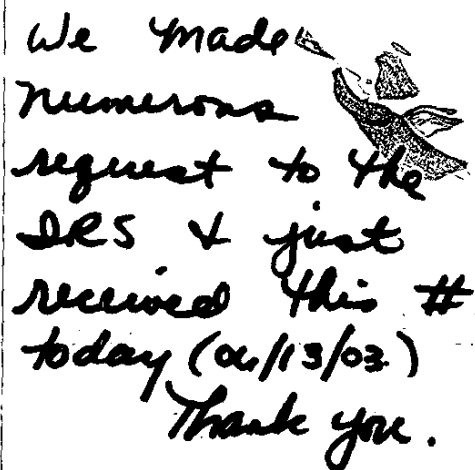 We made
numerous
request to the
IRS & just
received this #
today (06/13/03.)
Thank you.